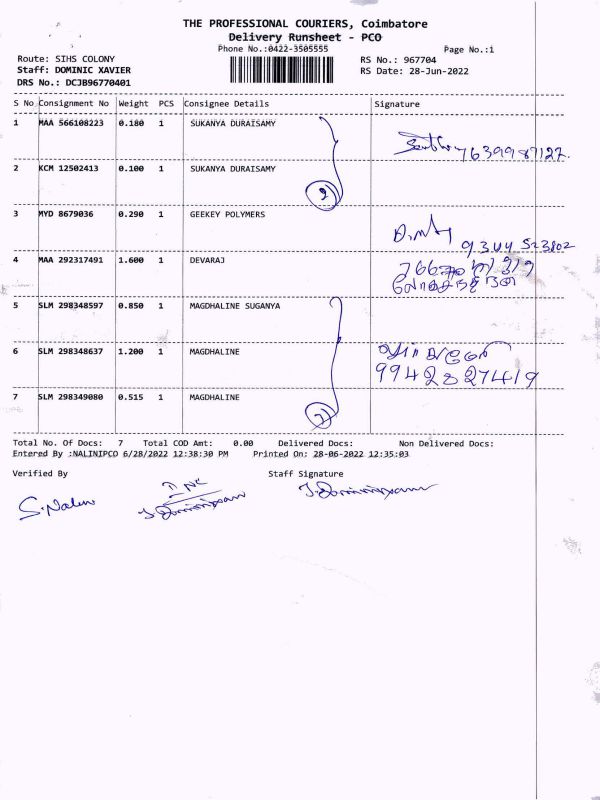 THE PROFESSIONAL COURIERS, Coimbatore
Delivery Runsheet - PCO
Phone No.:0422-3505555
Page No.:1
Route: SIHS COLONY
RS No.: 967704
Staff: DOMINIC XAVIER
RS Date: 28-Jun-2022
DRS No.: DCJB96770401
S No Consignment No Weight PCS Consignee Details Signature
1 MAA 566108223 0.180 1 SUKANYA DURAISAMY
7639987127.
2 KCM 12502413 0.100 1 SUKANYA DURAISAMY
2
3 MYD 8679036 0.290 1 GEEKEY POLYMERS
9344523802
4 MAA 292317491 1.600 1 DEVARAJ
5 SLM 298348597 0.850 1 MAGDHALINE SUGANYA
6 SLM 298348637 1.200 1 MAGDHALINE
9942827419
7 SLM 298349080 0.515 1 MAGDHALINE
Total No. Of Docs: 7 Total COD Amt: 0.00 Delivered Docs: Non Delivered Docs:
Entered By :NALINIPCO 6/28/2022 12:38:30 PM Printed On: 28-06-2022 12:35:03
Verified By Staff Signature
S.Nalini